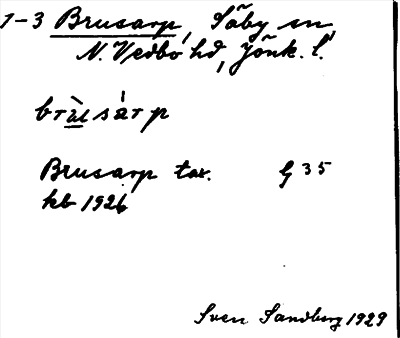 1-3 Brusarp, Säby sn,
N. Vedbo hd, Jönk. l.
brùsárp
Brusarp tax. G 35
kb 1926
Sven Sandberg 1929